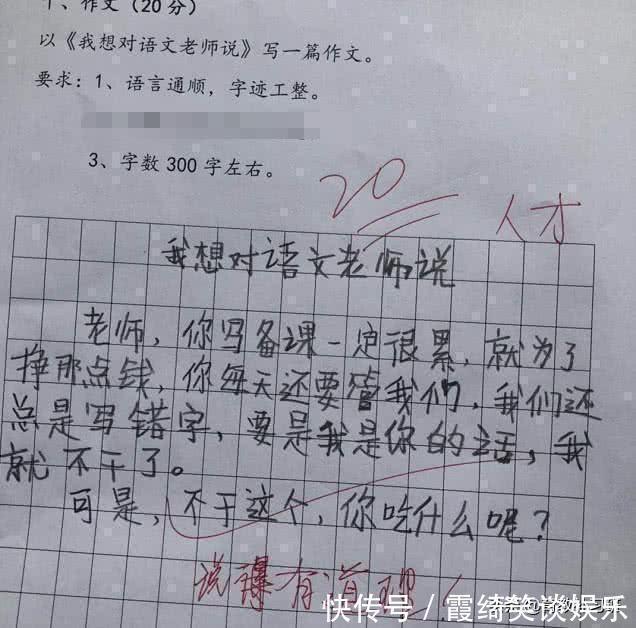 十、作文（20分）
以《我想对语文老师说》写一篇作文。
要求：1、语言通顺，字迹工整。
3、字数300字左右。
20
人才
我想对语文老师说
老师，你写备课一定很累，就为了
挣那点钱，你每天还要管我们，我们还
总是写错字，要是我是你的话，我
就不干了。
可是，不干这个，你吃什么呢？
说得有道理！
快传号／霞绮笑谈娱乐